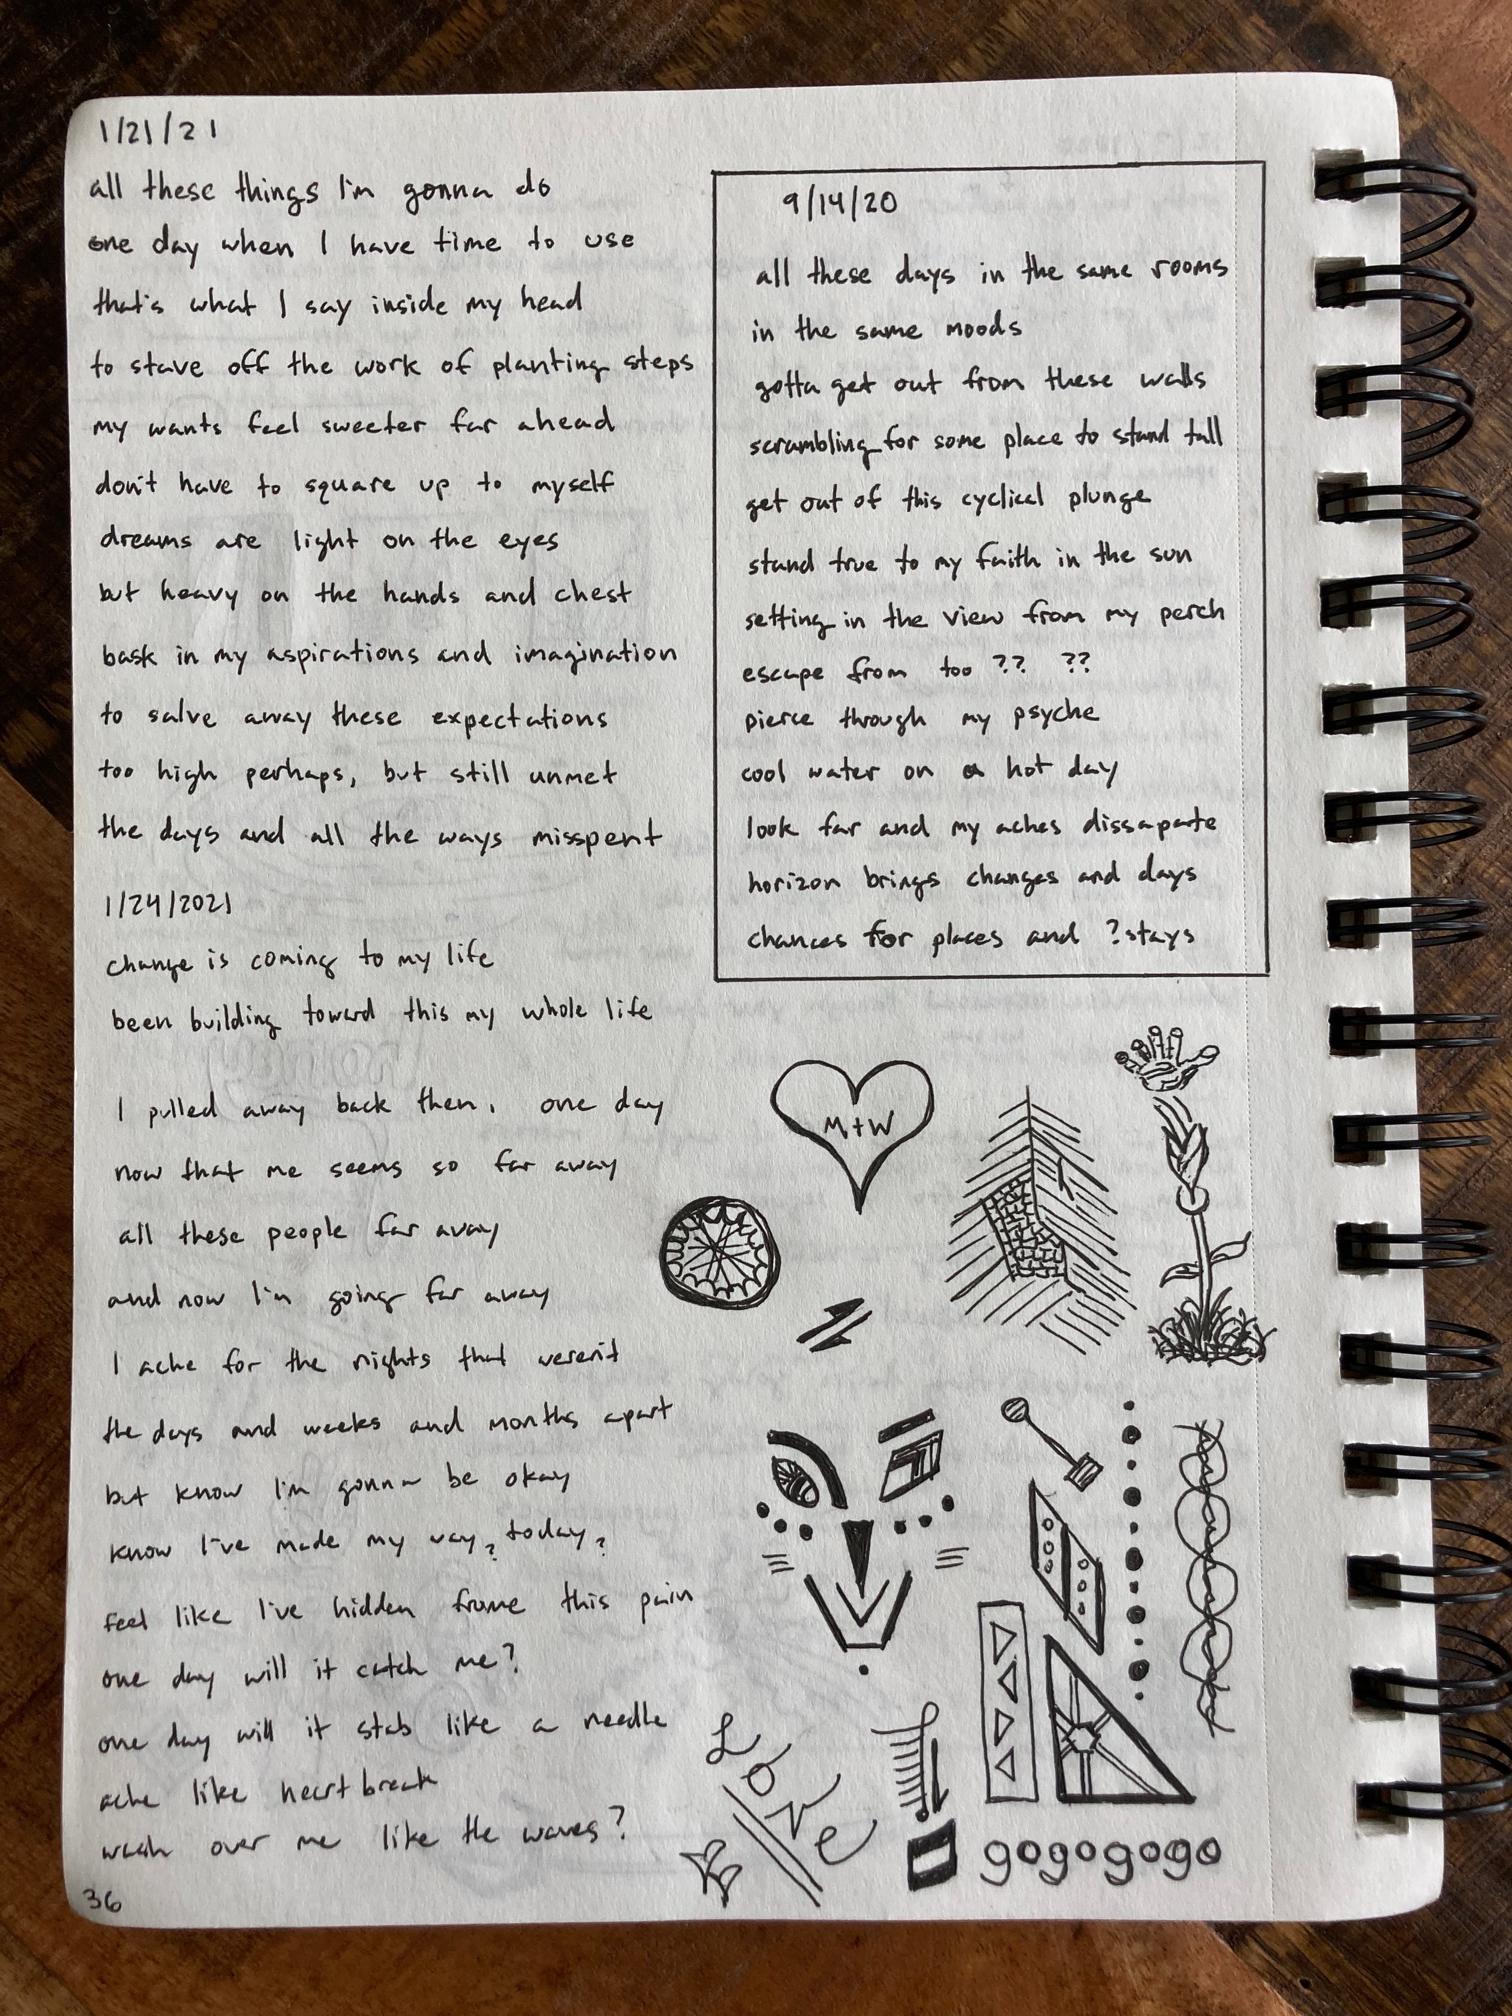 1/21/21
all these things I'm gonna do
one day when I have time to use
that's what I say inside my head
to stave off the work of planting steps
my wants feel sweeter far ahead
don't have to square up to myself
dreams are light on the eyes
but heavy on the hands and chest
bask in my aspirations and imagination
to salve away these expectations
too high perhaps, but still unmet
the days and all the ways misspent
1/24/2021
change is coming to my life
been building toward this my whole life
I pulled away back then, one day
now that me seems so far away
all these people far away
and now I'm going far away
I ache for the nights that weren't
the days and weeks and months apart
but know I'm gonna be okay
know I've made my way, today,
feel like I've hidden frome this pain
one day will it catch me?
one day will it stab like a needle
ache like heartbreak
wash over me like the waves?
36
9/14/20
all these days in the same rooms
in the same moods
gotta get out from these walls
scrambling for some place to stand tall
get out of this cyclical plunge
stand true to my faith in the sun
setting in the view from my perch
escape from too ?? ??
pierce through my psyche
cool water on a hot day
look far and my aches dissapate
horizon brings changes and days
chances for places and ?stays
M+W
Love
gogogogo